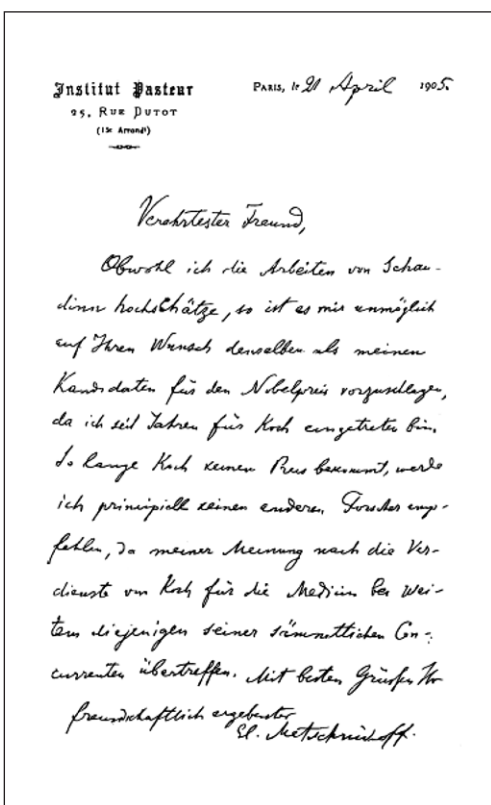 Institut Pasteur
25, RUE DUTOT
(15e Arrondt)
PARIS, le 21 April 1905.
Verehrtester Freund,
Obwohl ich die Arbeiten von Schau-
dinn hochschätze, so ist es mir unmöglich
auf Ihren Wunsch denselben als meinen
Kandidaten für den Nobelpreis vorzuschlagen,
da ich seit Jahren für Koch eingetreten bin.
So lange Koch keinen Preis bekommt, werde
ich principiell keinen anderen Forscher emp-
fehlen, da meiner Meinung nach die Ver-
dienste von Koch für die Medicin bei Wei-
tem diejenigen seiner sämmtlichen Con-
currenten übertreffen. Mit besten Grüssen Ihr
freundschaftlich ergebenster
El. Metschnikoff.